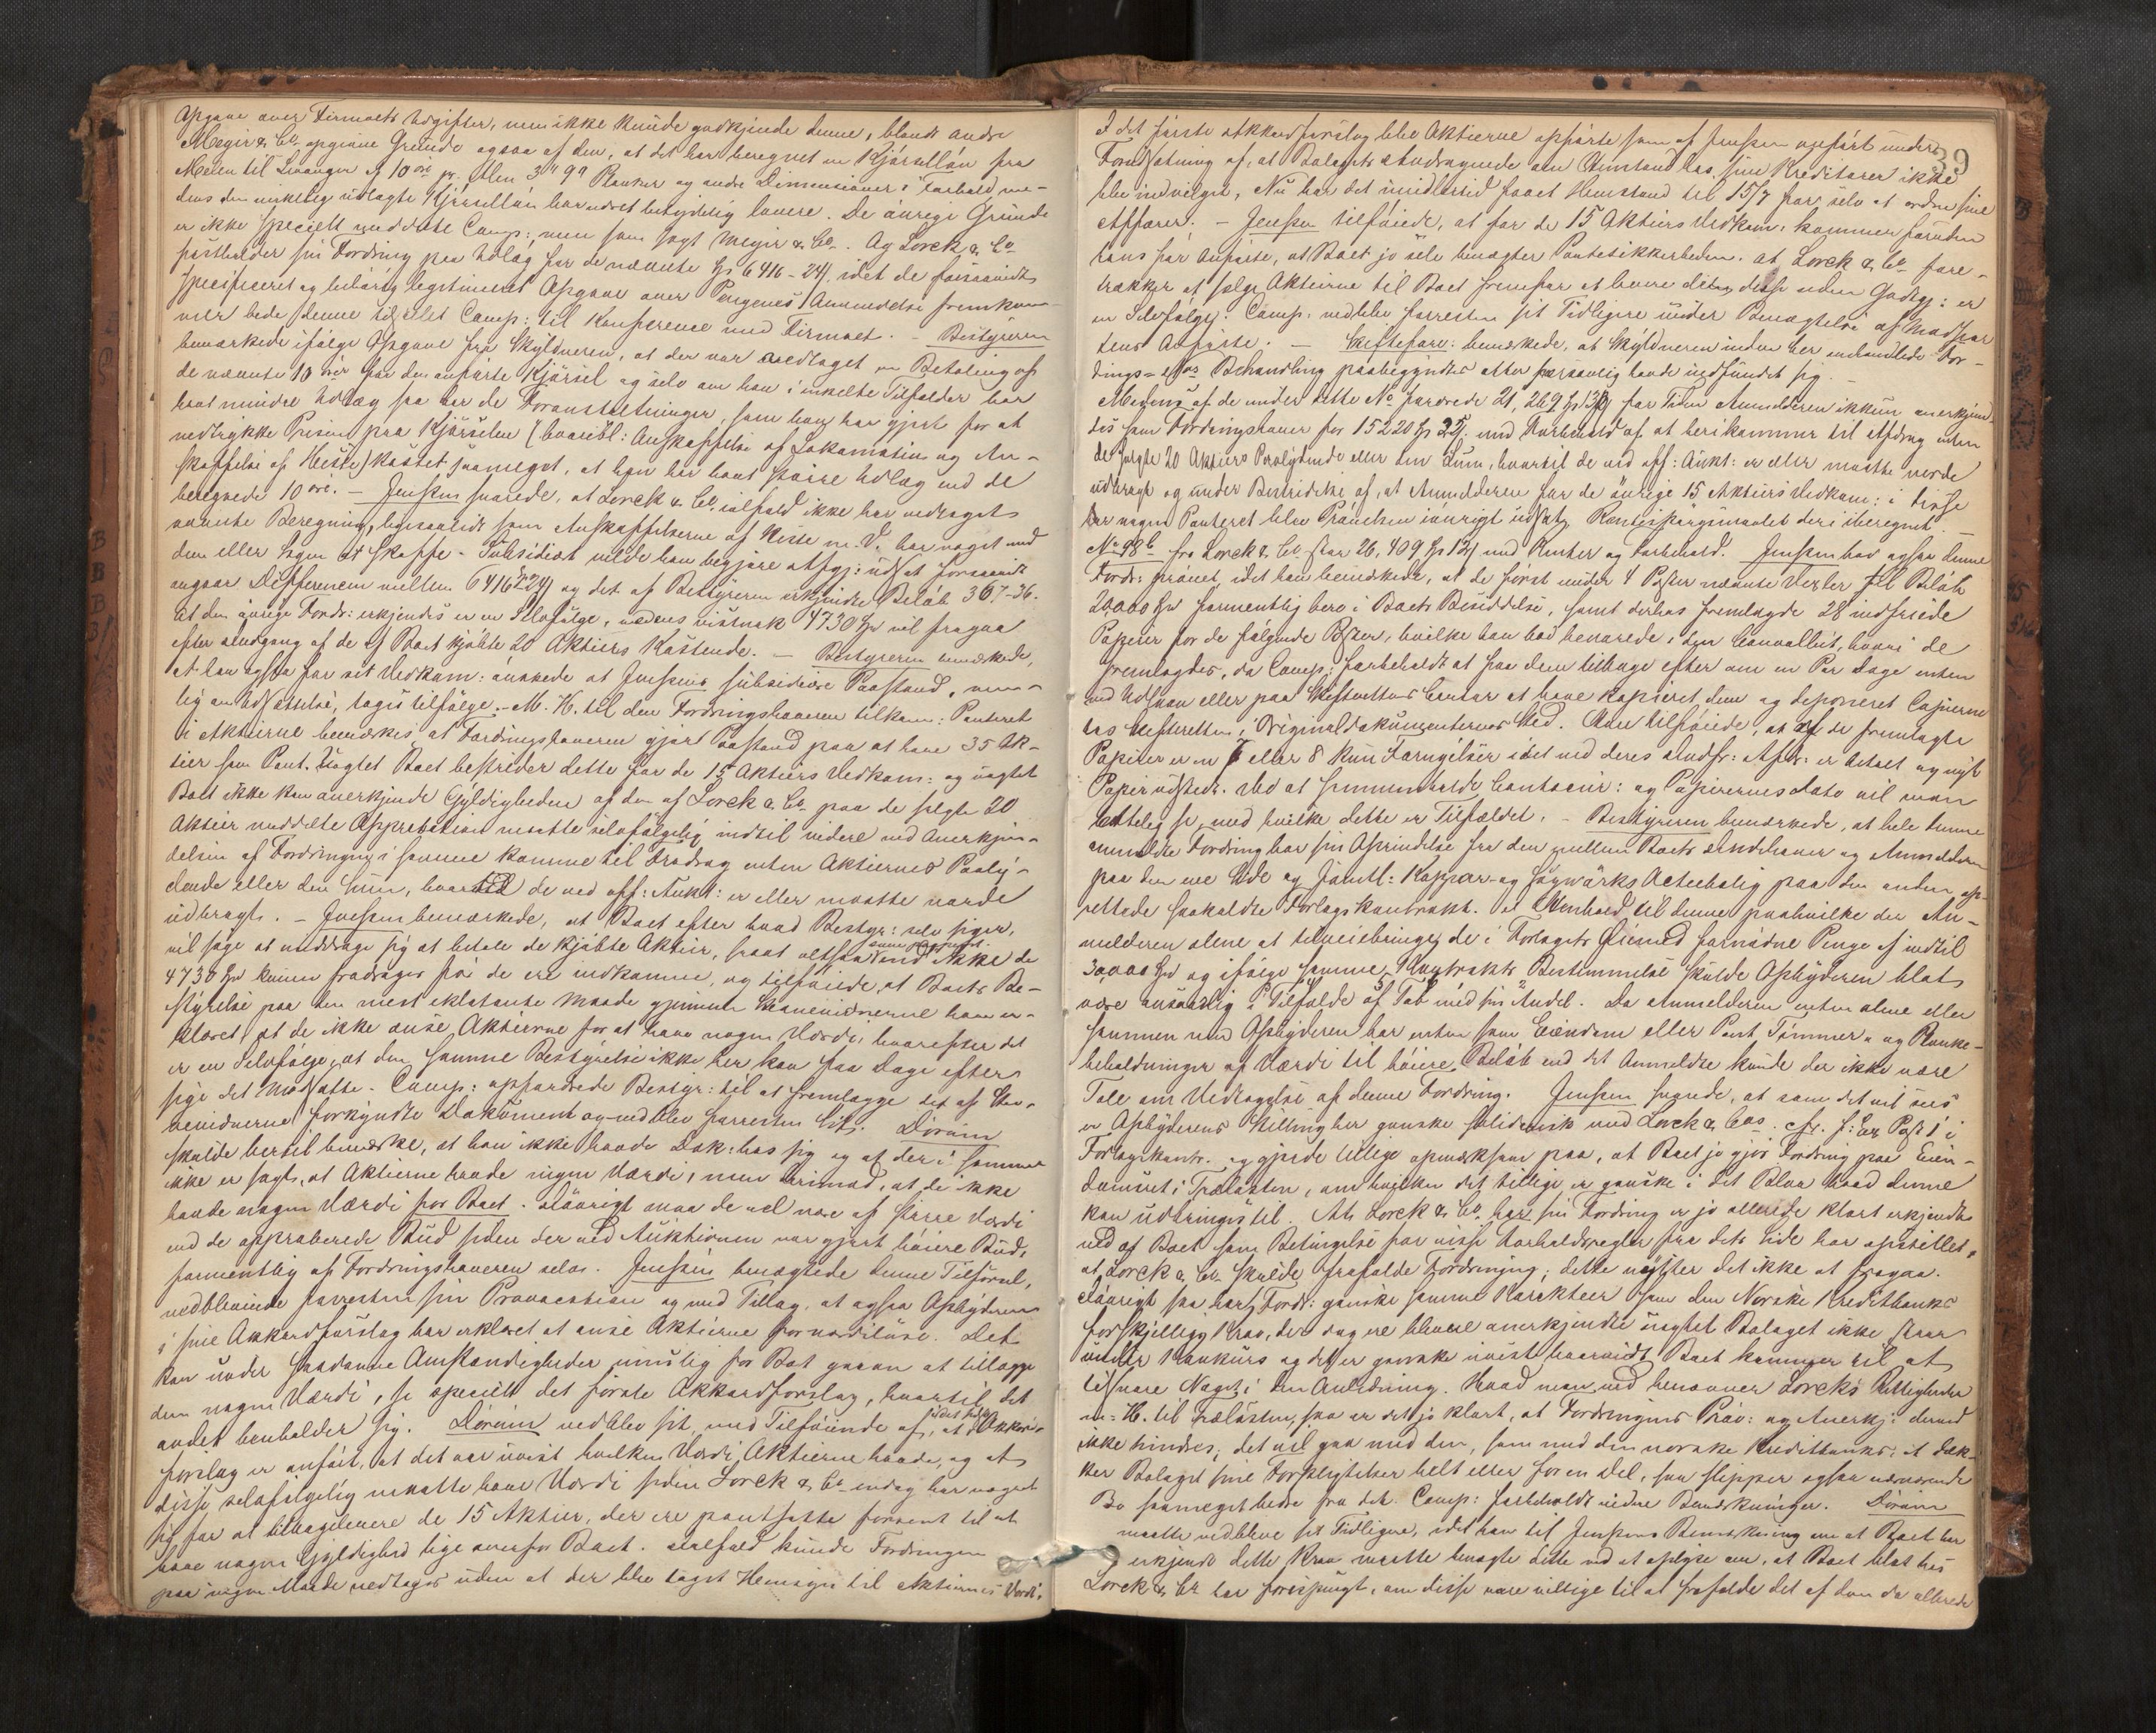 Opgave over Firmaets Udgifter, men ikke kunde godkjende denne, blandt andre
Meyer & Co opgivne Grunde ogsaa af den, at det har beregnet en Kjørsellön fra
Meilen til Levanger af 10 öre pr. Alen 3" 9" Planker og andre Dimensioner i Forhold me-
dens den virkelig udlagte Kjörsellön har været betydelig lavere. De övrige Grunde
er ikke specielt meddelte Comp:, men som sagt Meyer & Co. Og Lorck & Co
fastholder sin Fordring paa Udlæg for de nævnte Kr 6416-24, idet de forsaavidt
specificeret og behörig legitimeret Opgave over Pengenes Anvendelse fremkom-
mer bede denne tilstillet Comp: til Konference med Firmaet. – Bestyreren
bemærkede ifølge Opgave fra Skyldneren, at der var vedtaget en Betaling af
de nævnte 10 öre for den anførte Kjörsel og selv om han i enkelte Tilfælder har
havt mindre Udlæg saa har de Foranstaltninger, som han har gjort for at
nedtrykke Prisen paa Kjörselen (hvoribl: Anskaffelse af Lokomotiv og An-
skaffelse af Heste) kostet saameget, at han har havt större Udlæg end de
beregnede 10 öre. – Jenssen svarede, at Lorck & Co. ialfald ikke har vedtaget
nævnte Beregning, ligesaalidt som Anskaffelserne af Heste m. V. har noget med
dem eller Sagen at skaffe. Subsidiært vilde han begjære Afgj: udsat forsaavidt
angaar Differencen mellem 6416 Kr 24 og det af Bestyreren erkjendte Beløb 367-36.
At den övrige Fordr: erkjendes er en Selvfölge, medens vistnok 4730 Kr vil fragaa
efter Andragende af de af Boet kjøbte 20 Aktiers Kostende. – Bestyreren bemærkede,
at han ogsaa for sit Vedkom: ønskede at Jenssens subsidiære Paastand, nem-
lig om Udsættelse, tages tilfölge. – M. H. til den Fordringshaveren tilkom: Panteret
i Aktierne bemærkes at Fordringshaveren gjør Paastand paa at have 35 Ak-
tier som Pant. Uagtet Boet bestrider dette for de 15 Aktiers Vedkom: og uagtet
Boet ikke kan anerkjende Gyldigheden af den af Lorck & Co. paa de solgte 20
Aktier meddelte Approbation maatte selvfölgelig indtil videre ved Anerkjen-
delsen af Fordringen i samme komme til Fradrag enten Aktiernes Paaly-
dende eller den Sum, hvortil de ved off: Aukt: er eller maatte vorde
udbragt. – Jenssen bemærkede, at Boet efter hvad Bestyr: selv siger,
vil söge at unddrage sig at betale de kjøbte Aktier, saat altsaa ikke de
4730 Kr kunne fradrages för de ere indkomne, og tilföiede, at Boets Be-
styrelse paa den mest eklatante Maade gjennem Stævnevidnerne have er-
klæret, at de ikke anse Aktierne for at have nogen Værdi, hvorefter det
er en Selvfölge, at den samme Bestyrelse ikke her kan faa Dage efter
sige det Modsatte. Comp: opfordrede Bestyr: til at fremlægge det af Stæv-
nevidnerne forkyndte Dokument og vedblev forresten Sit. Dörum
skulde hertil bemærke, at han ikke havde Dok: hos sig og at der i samme
ikke er sagt, at Aktierne havde ingen Værdi, men derimod, at de ikke
havde nogen Værdi for Boet. Iövrigt maa de vel være af större Værdi
end de approberede Bud siden der ved Auktionen var gjort höiere Bud,
formentlig af Fordringshaveren selv. Jenssen benægtede denne Tilförsel,
vedblivende forresten sin Provocation og med Tillæg, at ogsaa Opbyderen
i sine Akkordforslag har erklæret at anse Aktierne for værdilöse. Det
kan under saadanne Omstændigheder umulig for Bot gaaan at tillægge
dem nogen Værdi, se specielt det förste Akkordforslag, hvortil det
andet henholder sig. Dörum vedblev sit, med Tilföiende af, at i det sidste Akkord-
forslag er anfört, at det var uvist hvilken Værdi Aktierne havde, og at
disse selvfölgelig maatte have Værdi siden Lorck & Co endog har vægret
sig for at tilbagelevere de 15 Aktier, der ere pantsatte forsent til at
have nogen Gyldighed lige overfor Boet. Ialfald kunde Fordringen
paa ingen Maade vedtages uden at der blev taget Hensyn til Aktiernes Værdi.
39
I det förste Akkordforslag blev Aktierne opförte som af Jenssen anfört under
Forudsætning af, at Bolagets Andragende om Henstand hos sine Kreditorer ikke
blev indvilget, Nu har det imidlertid faaet Henstand til 15/7 for selv at ordne sine
Affærer. – Jenssen tilföiede, at for de 15 Aktiers Vedkom: kommer foruden
hans för Anförte, at Boet jo selv benægter Pantesikkerheden. At Lorck & Co. fore-
trækker at sælge Aktierne til Boet fremfor at levere disse uden Godtgj: er
en Selvfölge. Comp. vedblev forresten sit Tidligere under Benægtelse af Modpar-
tens Anförte. – Skifteforv: bemærkede, at Skyldneren inden her omhandlede For-
drings-No's Behandling paabegyndtes atter personlig havde indfundet sig. –
Medens af de under dette No fordrede 21,269 Kr 13 for Tiden Anmelderen ikkun anerkjend-
tes som Fordringshaver for 15220 Kr 32 med Forbehold af at heri kommer til Afdrag enten
de solgte 20 Aktiers Paalydende eller den Sum, hvortil de ved off: Aukt: er eller maatte vorde
udbragt og under Bestridelse af, at Anmelderen for de övrige 15 Aktiers Vedkom: i disse
har nogen Panteret blev Prövelsen iövrigt udsat, Rentespörgsmaalet deri iberegnet.
No 48 b. fra Lorck & Co stor 26,409 Kr 12 med Renter og Forbehold. Jenssen bad ogsaa denne
Fordr: prövet, idet han bemærkede, at de først under 4 Poster nævnte Vexler til Beløb
20,000 Kr formentlig bero i Boets Besiddelse, samt derhos fremlagde 28 indfriede
Papirer for de fölgende Poster, hvilke han bad bevarede i den Convollut, hvori de
fremlagdes, da Comp: forbeholdt at faa dem tilbage efter om en Par Dage enten
ved Udlaan eller paa Skifterettens Contor at have kopieret dem og deponeret Copierne
hos Skifteretten i Originaldokumenternes Sted. Han tilföiede, at af de fremlagte
Papirer er en 7 eller 8 kun Fornyelser idet ved deres Indfr: Afdr: er betalt og nyt
Papir udstedt. Ved at sammenholde Contocour: og Papirernes Dato vil man
lettelig se, med hvilke dette er Tilfældet. – Bestyreren bemærkede, at hele denne
anmeldte Fordring har sin Oprindelse fra den mellem Boets Indehaver og Anmelderen
paa den ene Side og Jämtl: Koppar- og Sågwärks Actiebolag paa den anden op-
rettede saakaldte Forlagskontrakt. I Henhold til denne paahvilte der An-
melderen alene at tilveiebringe de i Forlagets Öiemed fornödne Penge af indtil
30,000 Kr og ifölge samme Kontrakts Bestemmelse skulde Opbyderen blot
være ansvarlig i Tilfælde af Tab med sin Andel. Da Anmelderen enten alene eller
sammen med Opbyderen har enten som Eiendom eller Pant Tömmer- og Planke-
beholdninger af Værdi til höiere Belöb end det Anmeldte kunde der ikke være
Tale om Vedtagelse af denne Fordring. Jenssen svarede, at som det vil sees
er Opbyderens Stilling her ganske solidarisk med Lorck & Cos. cfr. f: Ex Post 1 i
Forlagskontr. og gjorde tillige opmærksom paa, at Boet jo gjör Fordring paa Eien-
domsret i Trælasten, om hvilken det tillige er ganske i det Blaa hvad denne
kan udbringes til. At Lorck & Co. har sin Fordring er jo allerede klart erkjendt
ved af Boet som Betingelse for visse Forholdsregler fra dets Side har opstillet,
at Lorck & Co. skulde frafalde Fordringen; dette nytter det ikke at fragaa.
Iövrigt saa har Fordr: ganske samme Karakteer som den Norske Kreditbanks
forskjellige Krav, der dog ere blevne anerkjendte uagtet Bolaget ikke staar
under Konkurs og det er ganske uvist hvorvidt Boet kommer til at
tilsvare Noget i den Anledning. Hvad man end benævner Lorcks Rettigheder
m. H. til Trælasten, saa er det jo klart, at Fordringens Pröv: og Anerkj: derved
ikke hindres; det vil gaa med den, som med den norske Kreditbanks; at dæk-
ker Bolaget sine Forpligtelser helt eller for en Del, saa slipper ogsaa nærværende
Bo saameget bedre fra det. Comp: forbeholdt videre Bemærkninger. Dörum
maatte vedblive sit Tidligere, idet han til Jenssens Bemærkning om at Boet har
erkjendt dette Krav maatte benægte dette ved at oplyse om, at Boet blot hos
Lorck & Co har forespurgt, om disse vare villige til at frafalde det af dem da allerede